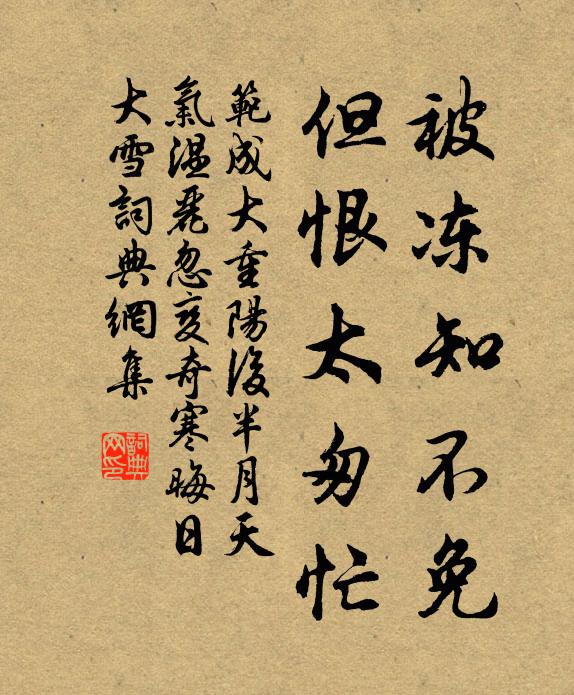 被冻知不免
但恨太匆忙
範成大重陽後半月天
氣温麗忽变奇寒晦日
大雪詞典網集
詞典
网印